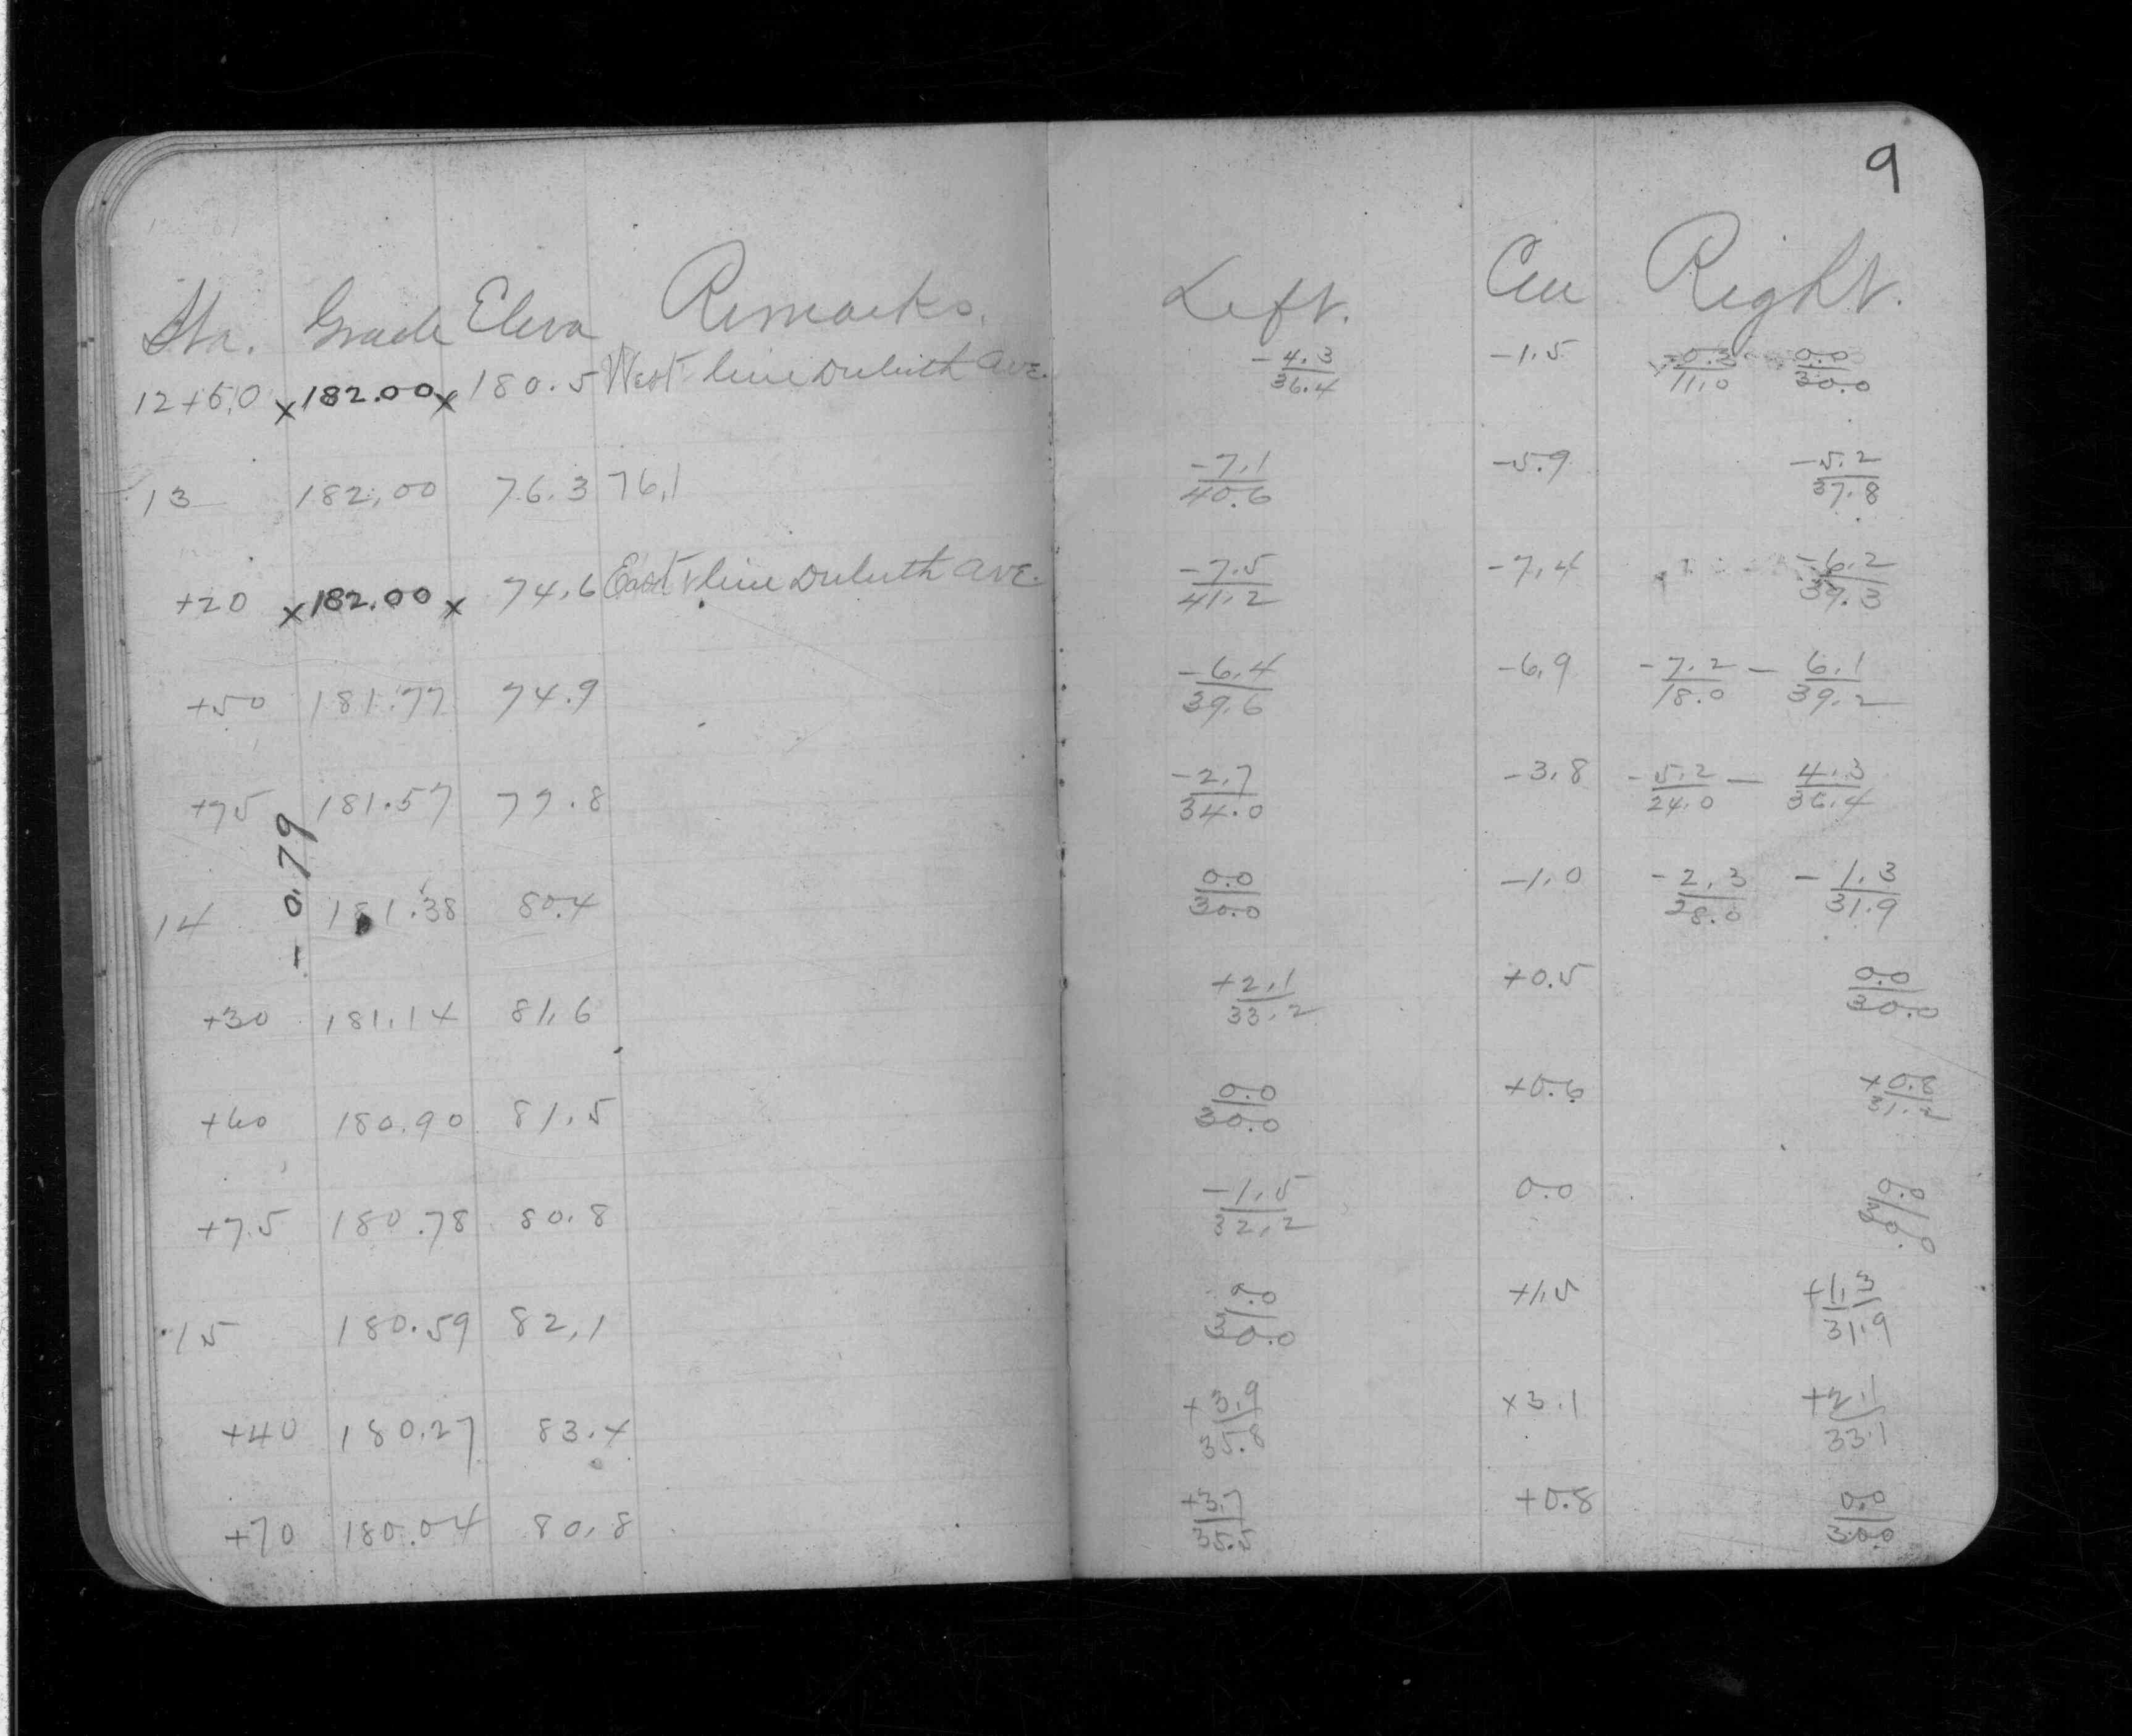 9
Sta. Grade Eleva Remarks. Left. Cen Right.
12+50 x182.00x 180.5 West line Duluth Ave. -4.3/36.4 -1.5 -0.3/11.0 0.0/30.0
13 182.00 76.3 76.1 -7.1/40.6 -5.9 -5.2/37.8
+20 x182.00x 74.6 East line Duluth Ave. -7.5/41.2 -7.4 -6.2/39.3
+50 181.77 74.9 -6.4/39.6 -6.9 -7.2/18.0 - 6.1/39.2
+75 181.57 77.8 -2.7/34.0 -3.8 -5.2/24.0 - 4.3/36.4
- 0.79
14 181.38 80.4 0.0/30.0 -1.0 -2.3/28.0 -1.3/31.9
+30 181.14 81.6 +2.1/33.2 +0.5 0.0/30.0
+60 180.90 81.5 0.0/30.0 +0.6 +0.8/31.2
+75 180.78 80.8 -1.5/32.2 0.0 0.0/30.0
15 180.59 82.1 0.0/30.0 +1.5 +1.3/31.9
+40 180.27 83.4 +3.9/35.8 +3.1 +2.1/33.1
+70 180.04 80.8 +3.7/35.5 +0.8 0.0/30.0